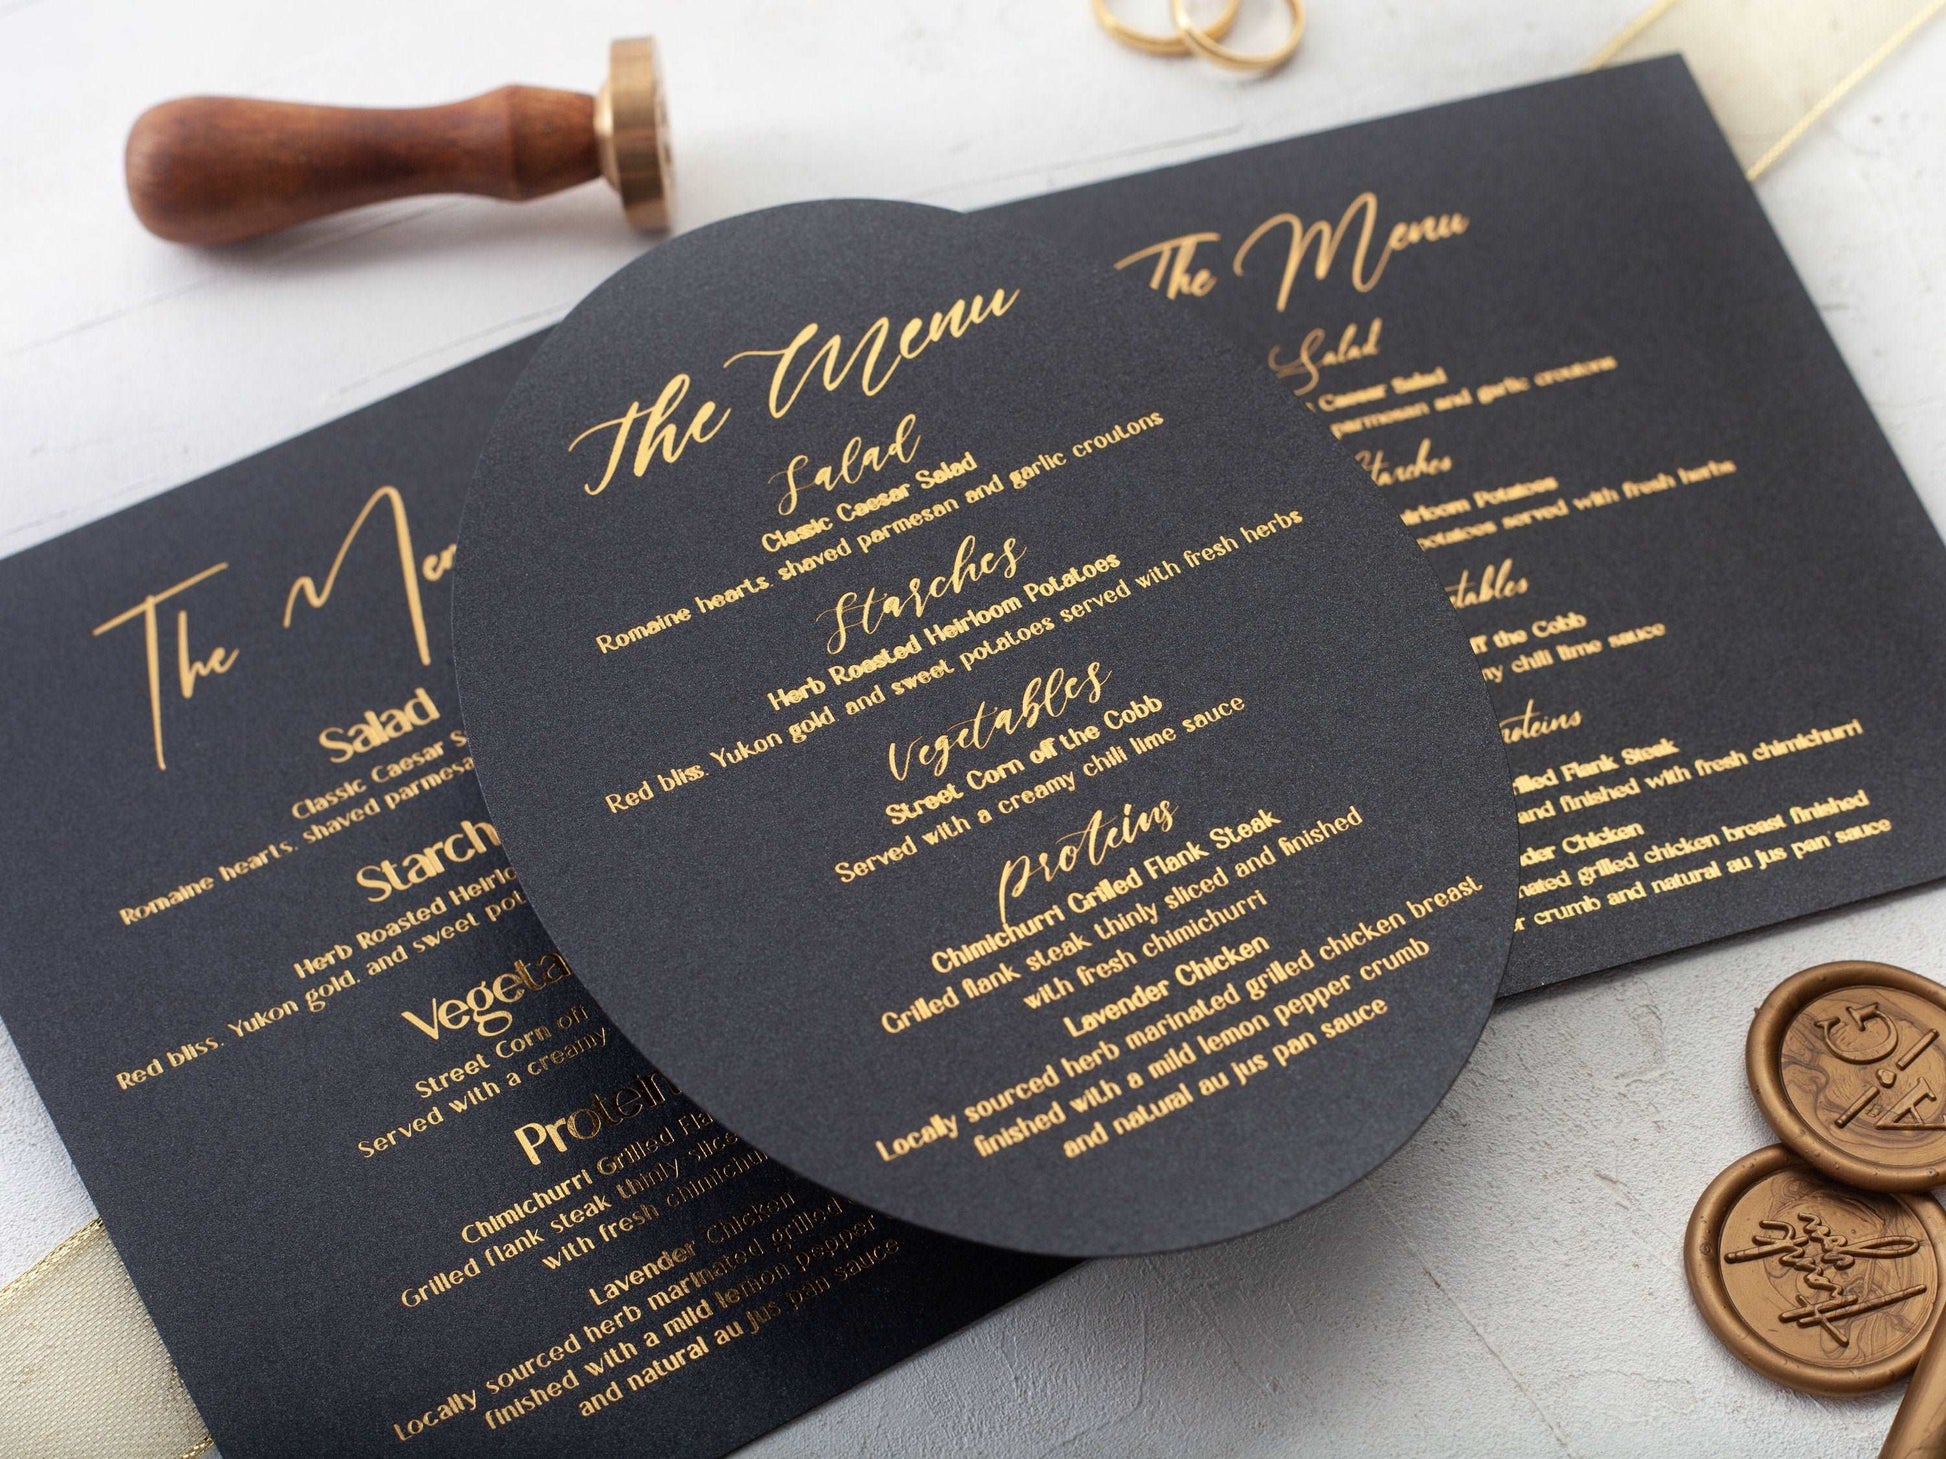 The Menu
Salad
Classic Caesar Salad
Romaine hearts, shaved parmesan and garlic croutons
Starches
Herb Roasted Heirloom Potatoes
Red bliss, Yukon gold and sweet potatoes served with fresh herbs
Vegetables
Street Corn off the Cobb
Served with a creamy chili lime sauce
Proteins
Chimichurri Grilled Flank Steak
Grilled flank steak thinly sliced and finished
with fresh chimichurri
Lavender Chicken
Locally sourced herb marinated grilled chicken breast
finished with a mild lemon pepper crumb
and natural au jus pan sauce
The Men
Salad
Classic Caesar S
Romaine hearts, shaved parmesa
Starch
Herb Roasted Heirlo
Red bliss, Yukon gold, and sweet pot
Vegeta
Street Corn off
Served with a creamy
Protein
Chimichurri Grilled Fla
Grilled flank steak thinly slice
with fresh chimichu
Lavender Chicken
Locally sourced herb marinated grilled
finished with a mild lemon pepper
and natural au jus pan sauce
The Menu
Salad
Caesar Salad
parmesan and garlic croutons
tarches
irloom Potatoes
potatoes served with fresh herbs
tables
ff the Cobb
my chili lime sauce
roteins
rilled Flank Steak
and finished with fresh chimichurri
nder Chicken
nated grilled chicken breast finished
r crumb and natural au jus pan sauce
G.I.A